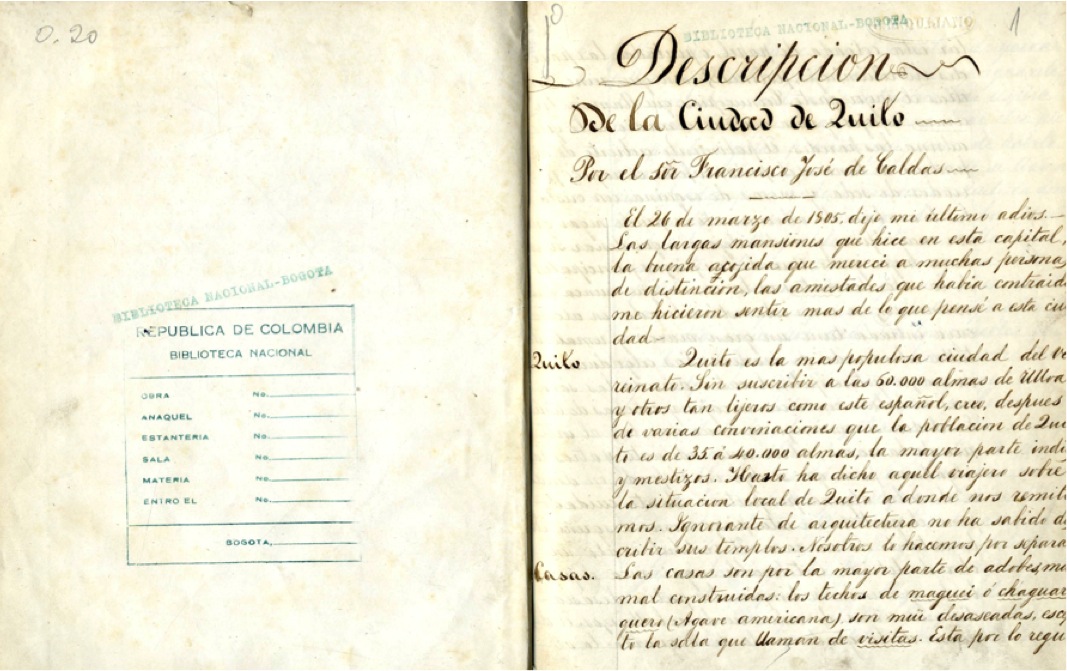 0.20
BIBLIOTECA NACIONAL-BOGOTA
REPUBLICA DE COLOMBIA
BIBLIOTECA NACIONAL
OBRA No.
ANAQUEL No.
ESTANTERIA No.
SALA No.
MATERIA No.
ENTRO EL No.
BOGOTA,
BIBLIOTECA NACIONAL-BOGOTA
1
Descripcion
De la Ciudad de Quito
Por el sőr Francisco José de Caldas
El 26 de marzo de 1805, dije mi último adios.—
Las largas mansiones que hice en esta capital,
la buena acojida que mereci a muchas personas
de distincion, las amestades que habia contraido
me hicieron sentir mas de lo que pensé a esta ciu
dad—
Quito
Quito es la mas populosa ciudad del ve
reinato. Sin suscribir a las 60.000 almas de Ulloa
y otros tan lijeros como este español, creo, despues
de varias convinaciones que la poblacion de Qui
to es de 35 á 40.000 almas, la mayor parte indi
y mestizos. Harto ha dicho aquel viajero sobre
la situacion local de Quito a donde nos remiti
mos. Ignorante de arquitectura no ha sabido d
cribir sus templos. Nosotros lo hacemos por separa
Casas.
Las casas son por la mayor parte de adobes, mu
mal construidas: los techos de maguei ó chaguar
quero (Agave americana) son mui desaseadas, esce
to la sala que llaman de visitas. Esta por lo regu